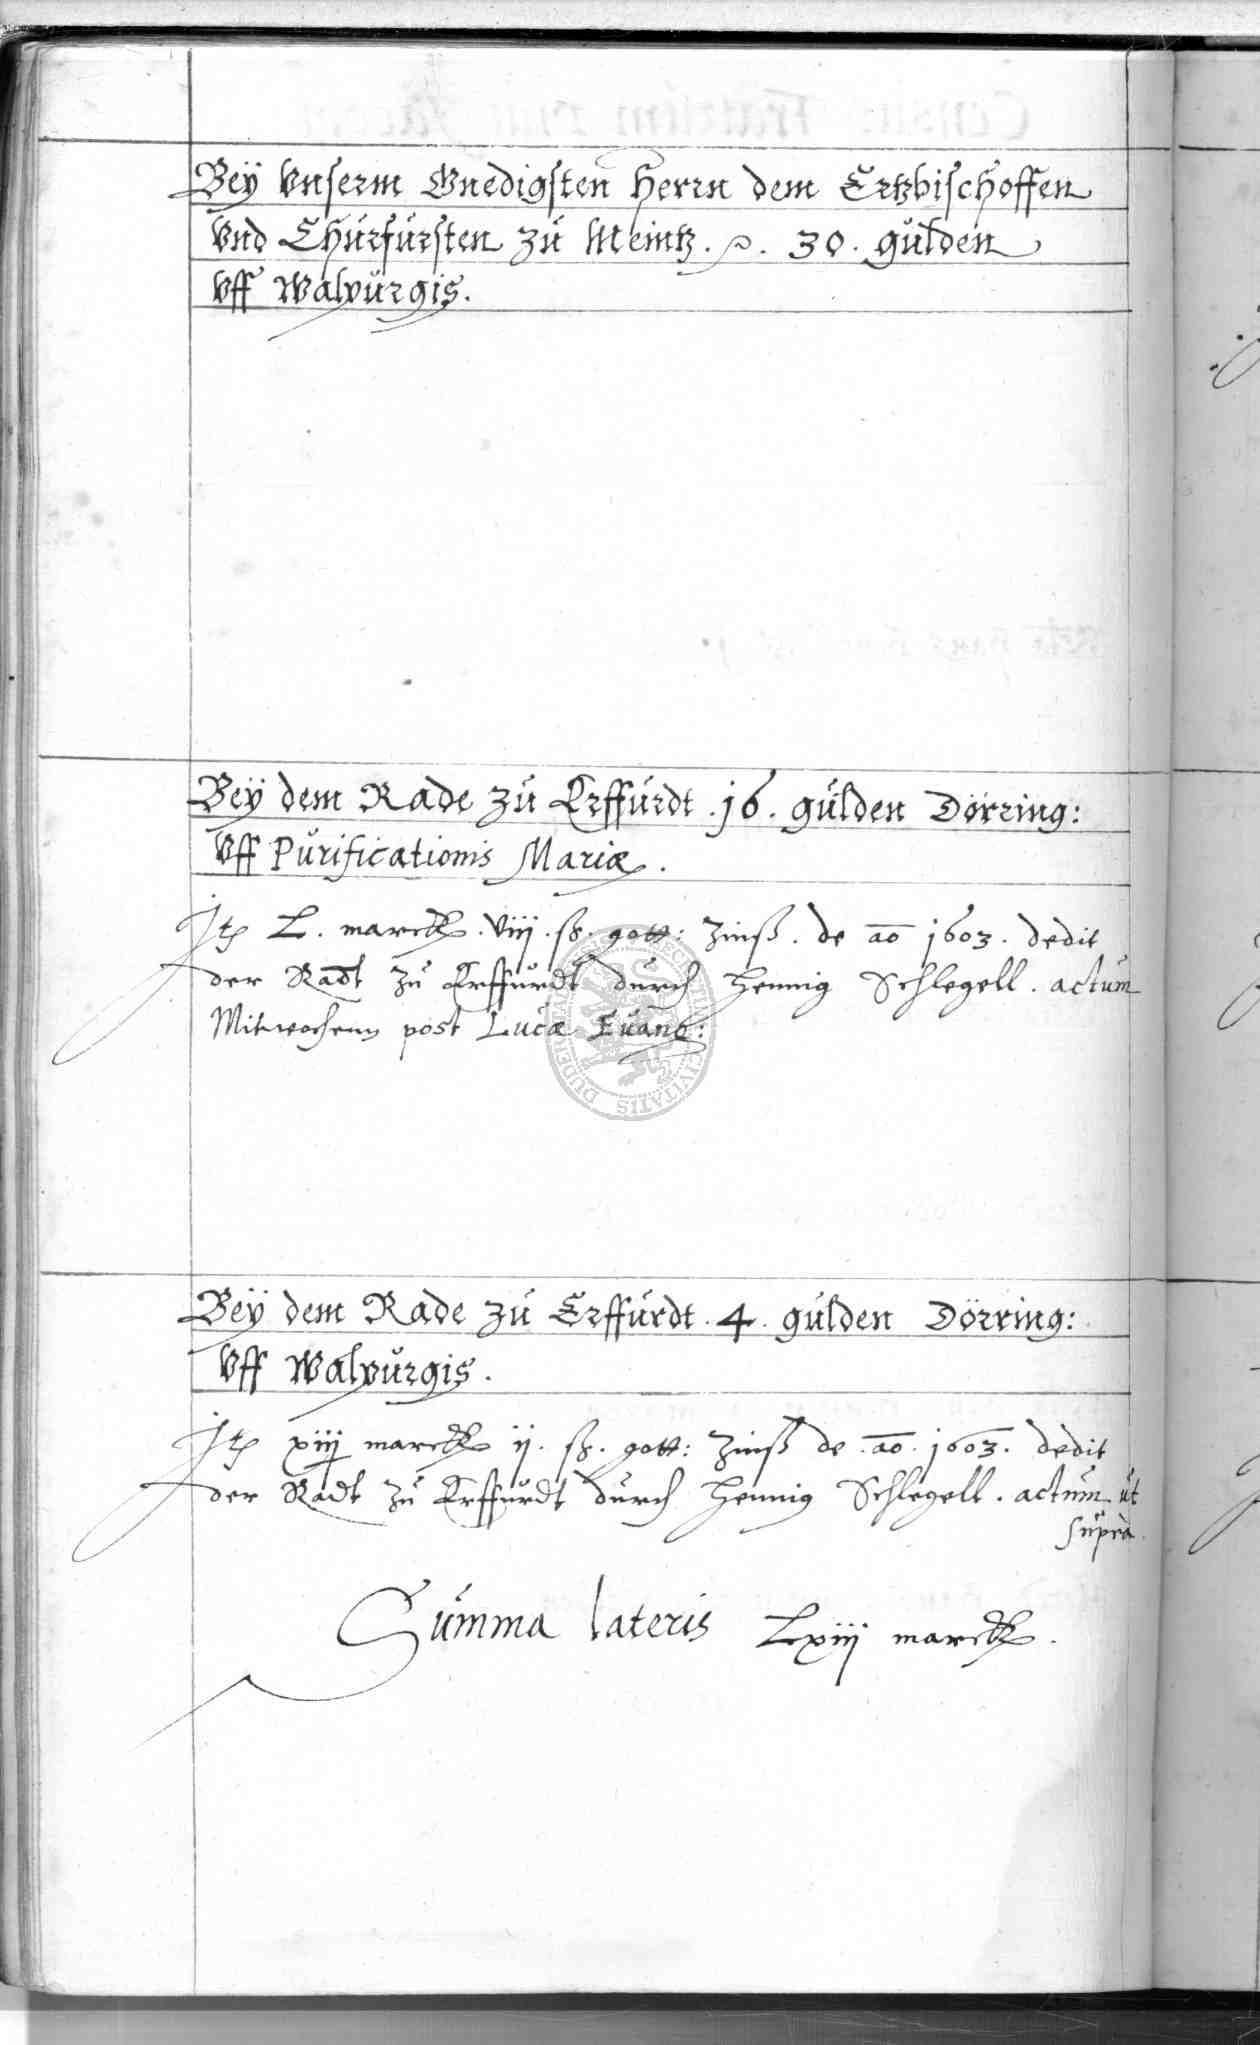 Beÿ Vnserm Gnedigsten Herrn dem Ertzbischoffen
Vnd Churfursten zu Meintz . 30 . gulden
Vff Walpurgis .
Beÿ dem Rade zu Erffurdt . 16 . gulden Dörring :
Vff Purificationis Mariæ .
Itē L . marck . viij . ß . gott : Zinß . de ao 1603 . dedit
der Radt zu Erffurdt durch Hennig Schlegell . actum
Mitwochenn post Lucæ Euang :
Beÿ dem Rade zu Erffurdt . 4 . gulden Dörring :
Vff Walpurgis .
Itē xiij marck ij . ß . gott : Zinß de . ao . 1603 . dedit
der Radt zu Erffurdt durch Hennig Schlegell . actum ut
supra .
Summa lateris Lxiij marck .